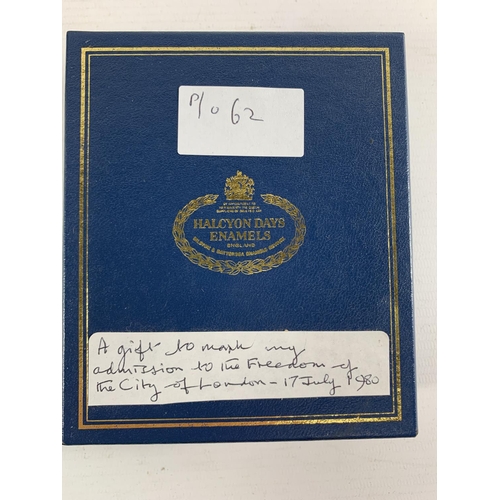 P/o 62
HALCYON DAYS
ENAMELS
ENGLAND
BILSTON & BATTERSEA ENAMELS REVIVED
A gift to mark my
admission to the Freedom of
the City of London - 17 July 1980